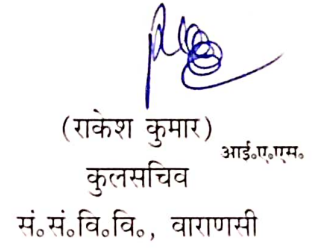 (राकेश कुमार) आई०ए०एस०
कुलसचिव
सं०सं०वि०वि०, वाराणसी